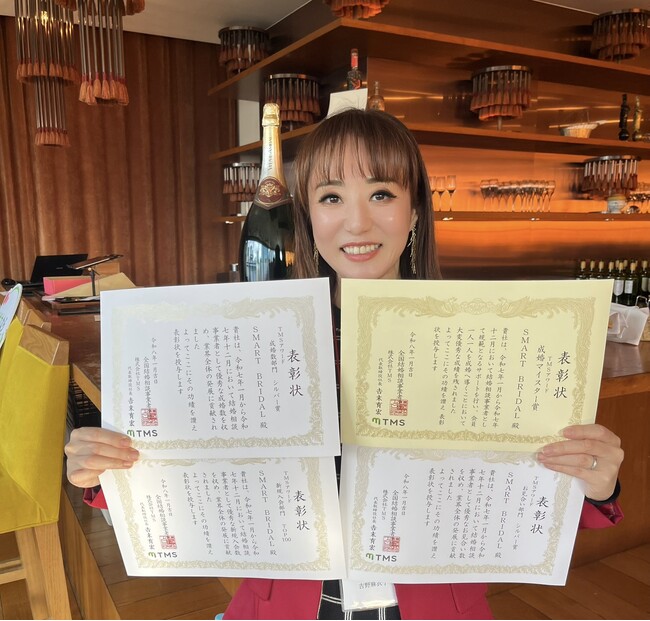 表彰状
TMSアワード
成婚数部門 シルバー賞
SMART BRIDAL 殿
貴社は、令和七年一月から令和
七年十二月において結婚相談
事業者として優秀な成婚数を収
め、業界全体の発展に貢献され
ました
よってここにその功績を讃え
表彰状を授与します
令和八年一月吉日
全国結婚相談事業者連盟
株式会社TMS
吉末有宏
TMS
表彰状
TMSアワード
成婚マイスター賞
SMART BRIDAL 殿
貴社は、令和七年一月から令和七年
十二月において結婚相談事業者とし
て規範となるサポート
一人一人を成婚へ導くことにおいて
大変優秀な成績を残されました
よってここにその功績を讃え 表彰
状を授与します
令和八年一月吉日
全国結婚相談事業者連盟
株式会社TMS
吉末有宏
TMS
表彰状
TMSアワード
新規入会部門 TOP100
SMART BRIDAL 殿
貴社は、令和七年一月から令和
七年十二月において結婚相談
事業者として優秀な新規入会数
を収め、業界全体の発展に貢献
されました
よってここにその功績を讃え
表彰状を授与します
令和八年一月吉日
全国結婚相談事業者連盟
株式会社TMS
吉末有宏
TMS
表彰状
TMSアワード
お見合い部門 シルバー賞
SMART BRIDAL 殿
貴社は、令和七年一月から令和
七年十二月において結婚相談
事業者として優秀なお見合い数
を収め、業界全体の発展に貢献
されました
よってここにその功績を讃え
表彰状を授与します
令和八年一月吉日
全国結婚相談事業者連盟
株式会社TMS
吉末有宏
TMS